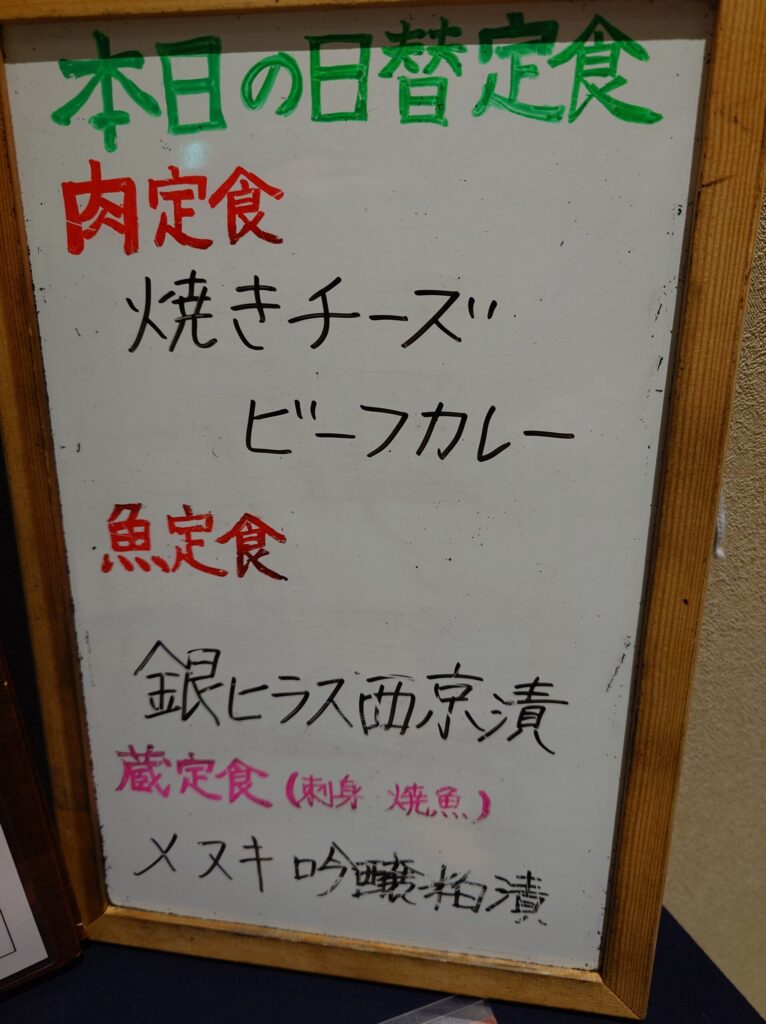 本日の日替定食
肉定食
焼きチーズ
ビーフカレー
魚定食
銀ヒラス西京漬
蔵定食(刺身 焼魚)
メヌキ吟醸粕漬